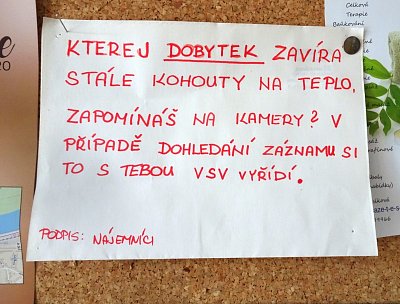 KTEREJ DOBYTEK ZAVÍRA
STÁLE KOHOUTY NA TEPLO,
ZAPOMÍNÁŠ NA KAMERY? V
PŘÍPADĚ DOHLEDÁNÍ ZÁZNAMU SI
TO S TEBOU VSV VYŘÍDÍ.
PODPIS: NÁJEMNÍCI
20
Celková
Terapie
Baňkování